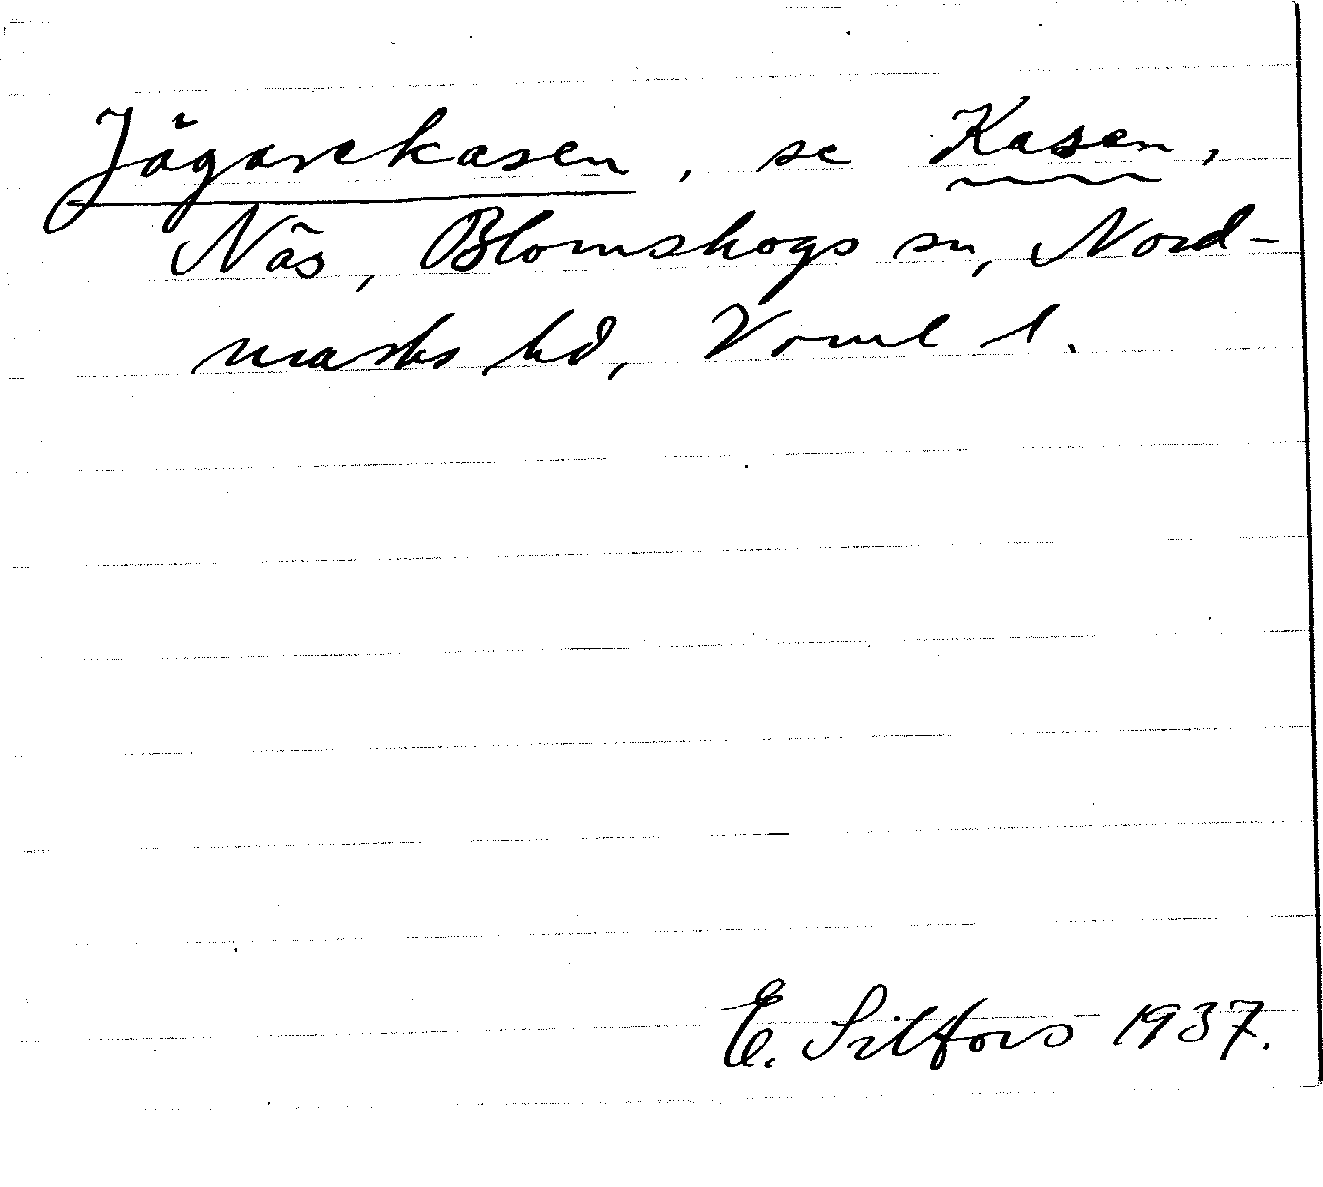 Jägarekasen, se Kasen,
Näs, Blomskogs sn, Nord-
marks hd, Värml l.
E. Silfors 1937.